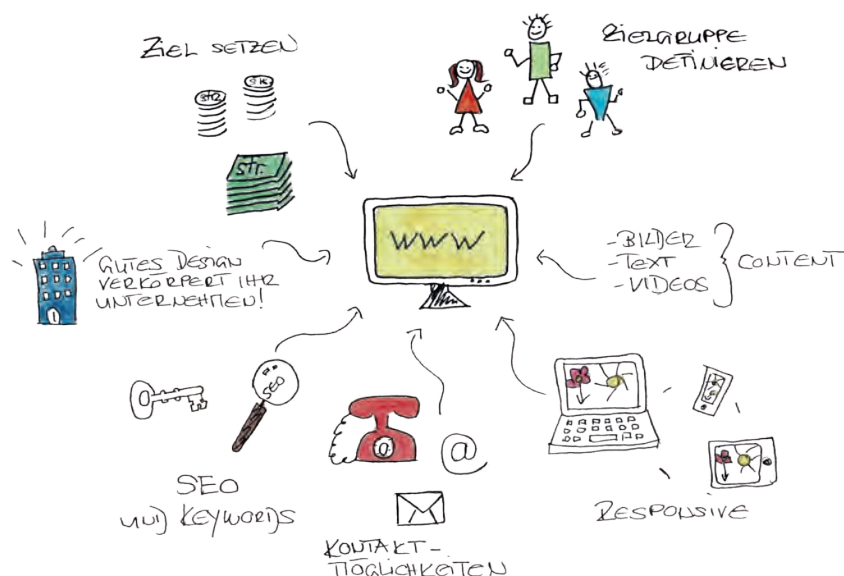 ZIEL SETZEN
ZIELGRUPPE
DEFINIEREN
STR.
WWW
GUTES DESIGN
VERKÖRPERT IHR
UNTERNEHMEN!
-BILDER
-TEXT
-VIDEOS
CONTENT
SEO
SEO
UND KEYWORDS
@
@
KONTAKT-
MÖGLICHKEITEN
RESPONSIVE